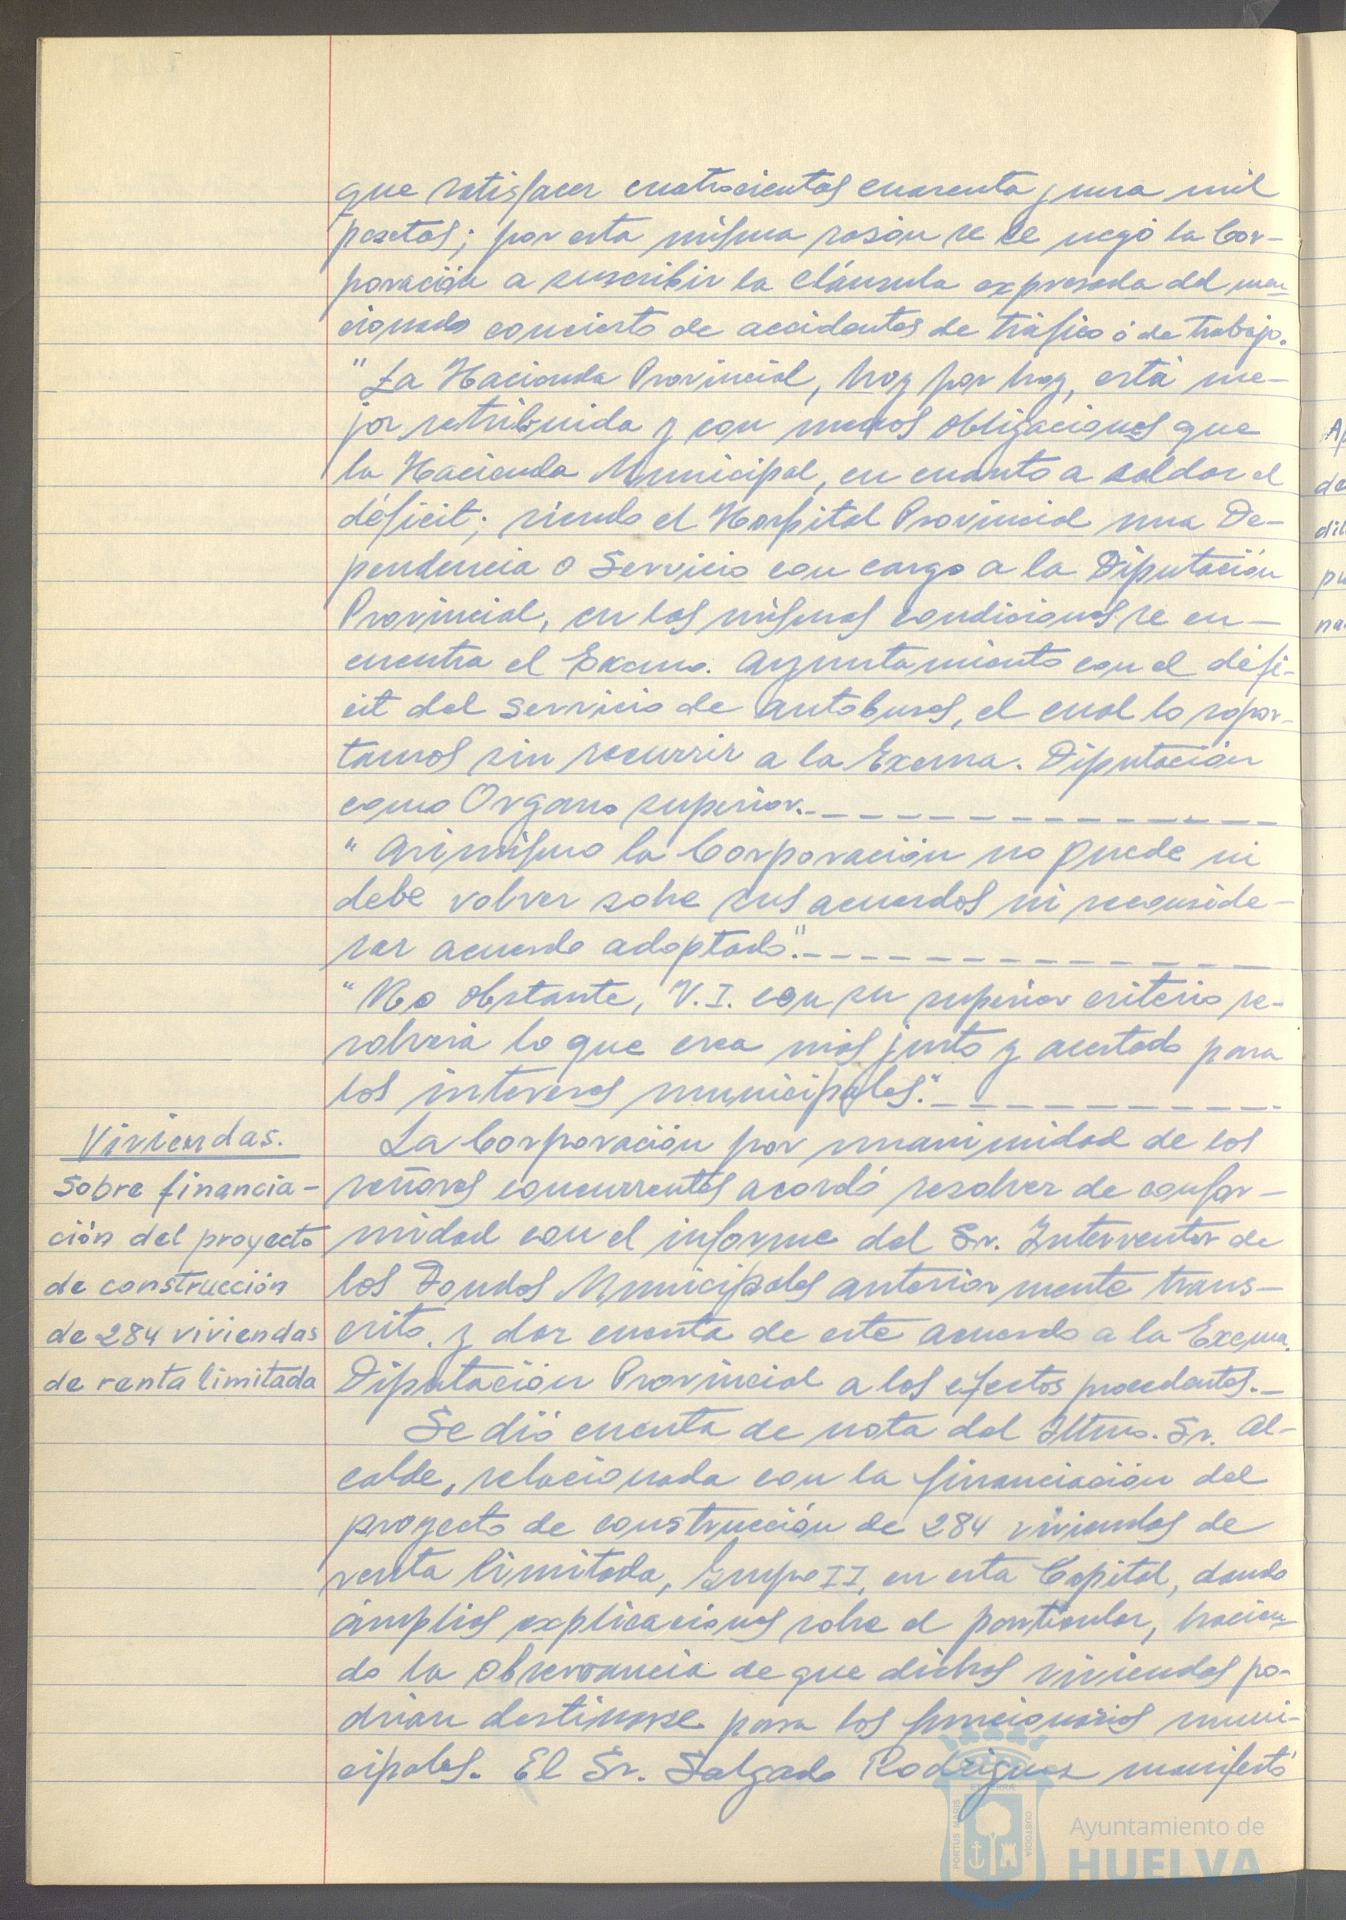 que satisfacer cuatrocientas cuarenta y una mil
pesetas; por esta misma rasón se le negó la Cor-
poración a suscribir la cláusula expresada del men-
cionado concierto de accidentes de tráfico ó de trabajo.
"La Hacienda Provincial, hoy por hoy, está me-
jor retribuida y con menos obligaciones que
la Hacienda Municipal, en cuanto a saldar el
déficit; siendo el Hospital Provincial una De-
pendencia o Servicio con cargo a la Diputación
Provincial, en las mismas condiciones se en-
cuentra el Excmo. Ayuntamiento con el défi-
cit del servicio de autobuses, el cual lo sopor-
tamos sin recurrir a la Excma. Diputación
como Organo superior.-
" Asimismo la Corporación no puede ni
debe volver sobre sus acuerdos ni reconside-
rar acuerdo adoptado".-
"No obstante, V.I. con su superior criterio re-
solverá lo que crea más justo y acertado para
los intereses municipales".-
Viviendas.
Sobre financia-
ción del proyecto
de construcción
de 284 viviendas
de renta limitada
La Corporación por unanimidad de los
señores concurrentes acordó resolver de confor-
midad con el informe del Sr. Interventor de
los Fondos Municipales anteriormente trans-
crito, y dar cuenta de este acuerdo a la Excma.
Diputación Provincial a los efectos procedentes.-
Se dió cuenta de nota del Iltmo. Sr. Al-
calde, relacionada con la financiación del
proyecto de construcción de 284 viviendas de
renta limitada, Grupo II, en esta Capital, dando
ámplias explicaciones sobre el particular, hacien-
do la observancia de que dichas viviendas po-
drían destinarse para los funcionarios muni-
cipales. El Sr. Salgado Rodriguez manifestó
PORTUS MARIS
CUSTODIA
Ayuntamiento de
HUELVA